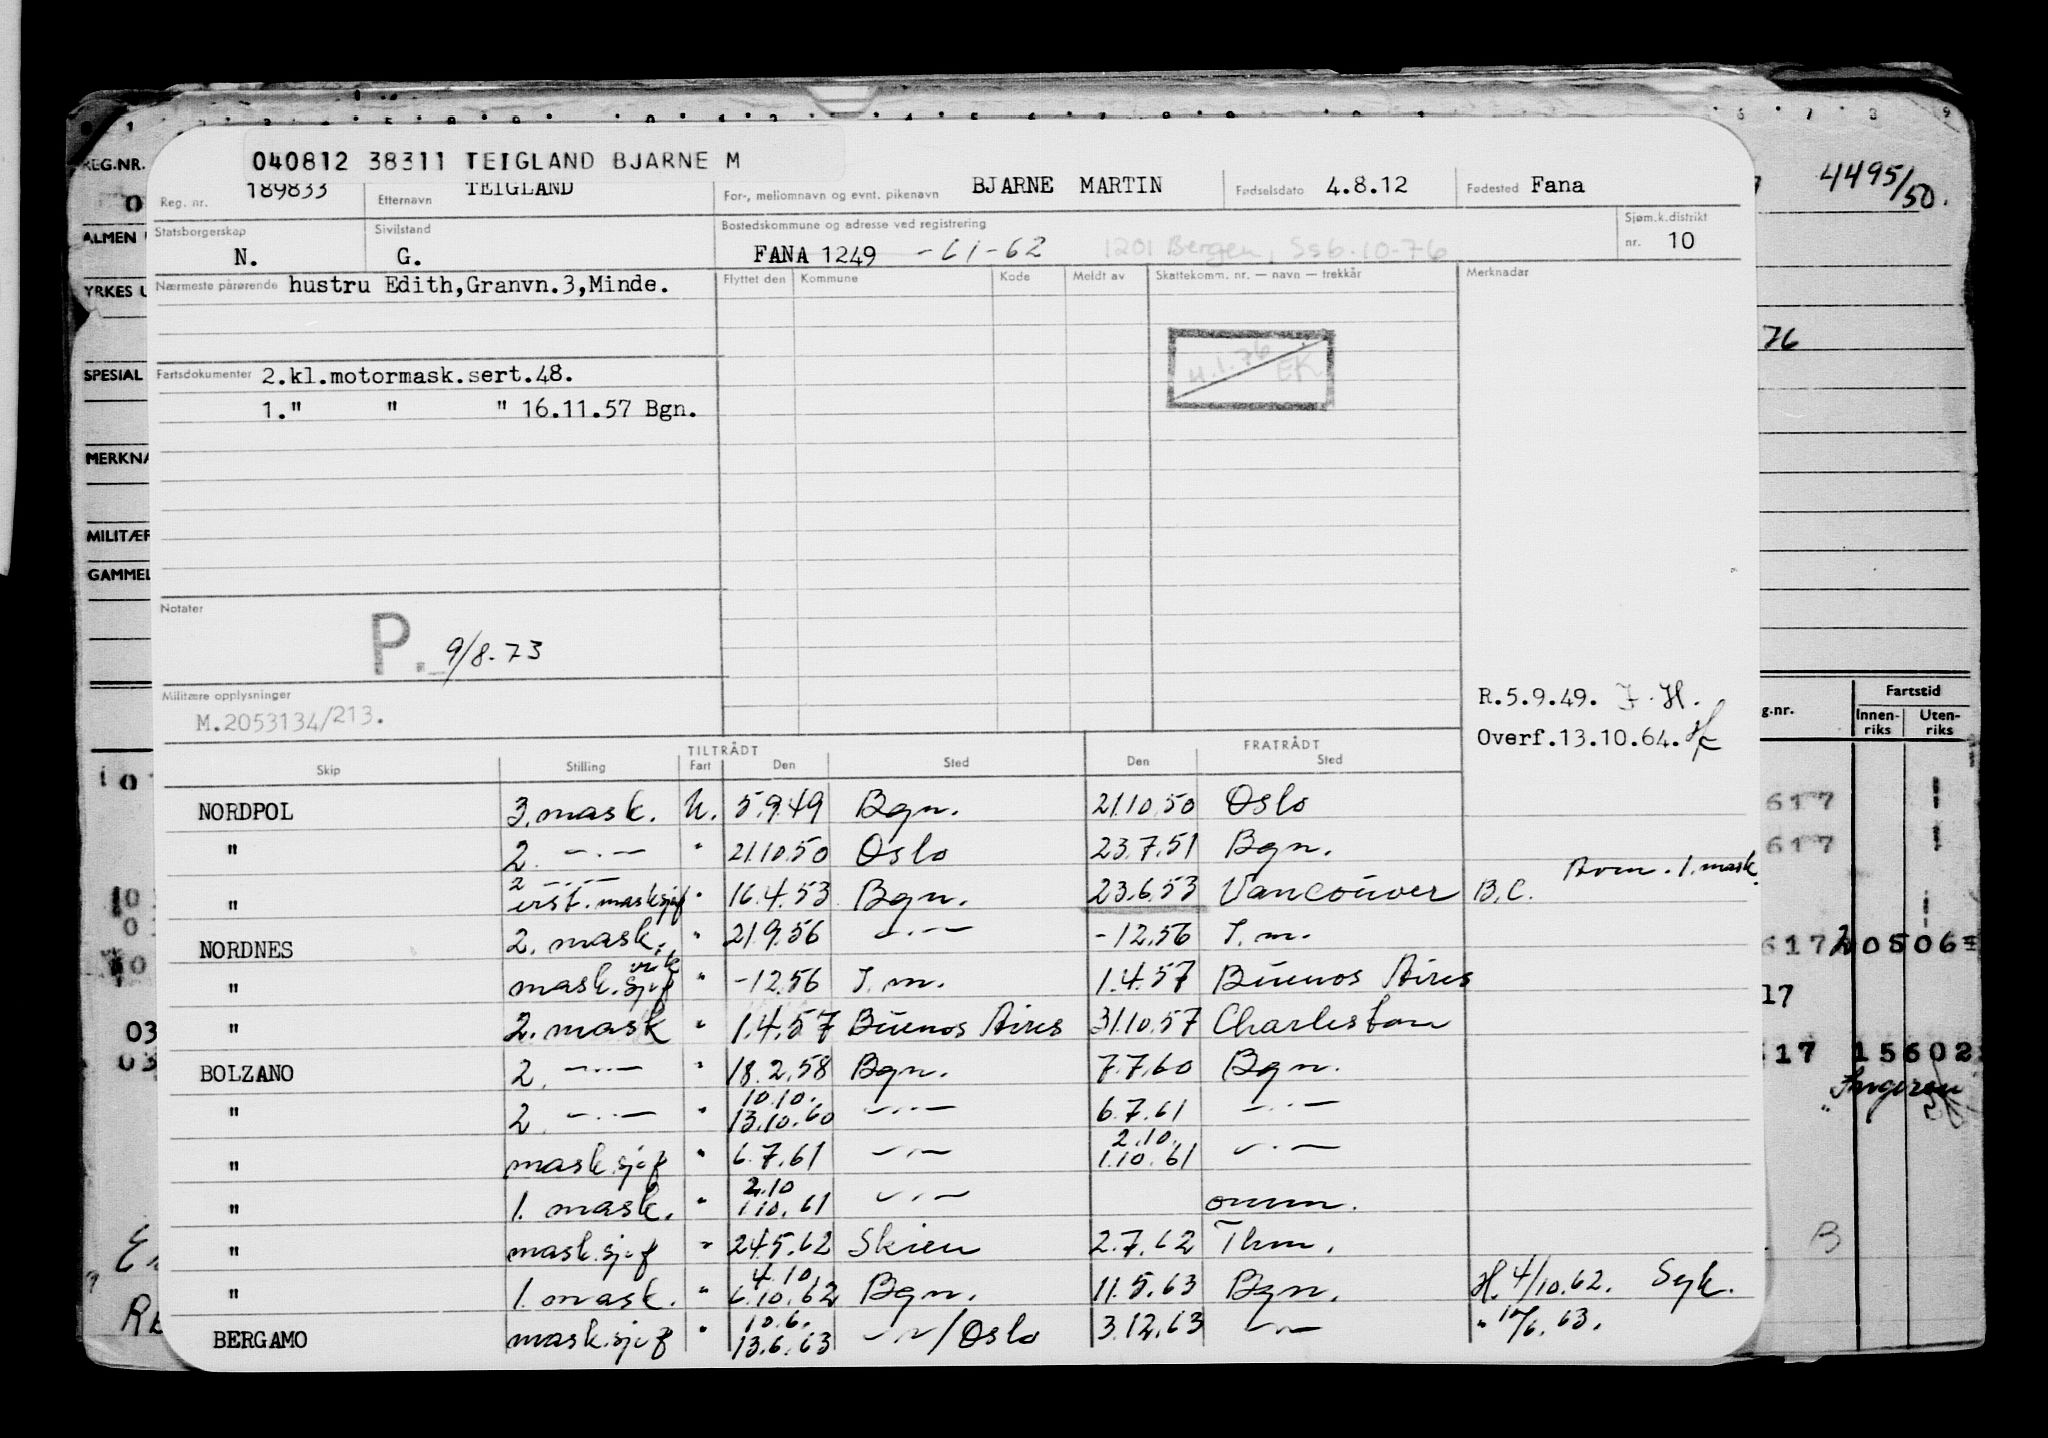 REG.NR.
040812 38311 TEIGLAND BJARNE M
4495/50.
Reg. nr. 189833 Etternavn TEIGLAND For-, mellomnavn og evnt. pikenavn BJARNE MARTIN Fødselsdato 4.8.12 Fødested Fana
ALMEN
Statsborgerskap N. Sivilstand G. Bostedskommune og adresse ved registrering FANA 1249 -61-62 1201 Bergen, Ssb.10-76 Sjøm.k.distrikt nr. 10
YRKES U
Nærmeste pårørende hustru Edith,Granvn.3,Minde. Flyttet den Kommune Kode Meldt av Skattekomm. nr. — navn — trekkår Merknader
76
SPESIAL
Fartsdokumenter 2.kl.motormask.sert.48. EK
1." " " 16.11.57 Bgn.
MERKNA
MILITÆR
GAMMEL
Notater
P. 9/8.73
Militære opplysninger
M.2053134/213.
R.5.9.49. J.H.
Overf.13.10.64.
g.nr. Fartstid
Innen-riks Uten-riks
TILTRÅDT FRATRÅDT
Skip Stilling Fart Den Sted Den Sted
NORDPOL 3. mask. U. 5.9.49 Bgn. 21.10.50 Oslo
617
" 2. —"— " 21.10.50 Oslo 23.7.51 Bgn.
617
Avm. 1. mask.
" 2 —"— " 16.4.53 Bgn. 23.6.53 Vancouver B.C.
NORDNES 2. mask. " 21.9.56 —"— -12.56 I.m.
" mask.sjef vik " -12.56 I.m. 1.4.57 Buenos Aires
17
" 2. mask " 1.4.57 Buenos Aires 31.10.57 Charleston
03
BOLZANO 2. —"— " 18.2.58 Bgn. 7.7.60 Bgn.
17 15602
" 2. —"— " 10.10. 13.10.60 —"— 6.7.61 —"—
" mask.sjef " 6.7.61 —"— 2.10. 1.10.61 —"—
" 1. mask. " 2.10 1.10.61 —"— omm.
" mask.sjef " 24.5.62 Skien 2.7.62 Thm.
B
" 1. mask. " 4.10 6.10.62 Bgn. 11.5.63 Bgn. H. 4/10.62. Syk.
BERGAMO mask.sjef " 10.6. 13.6.63 —"—/Oslo 3.12.63 —"— " 6.63.